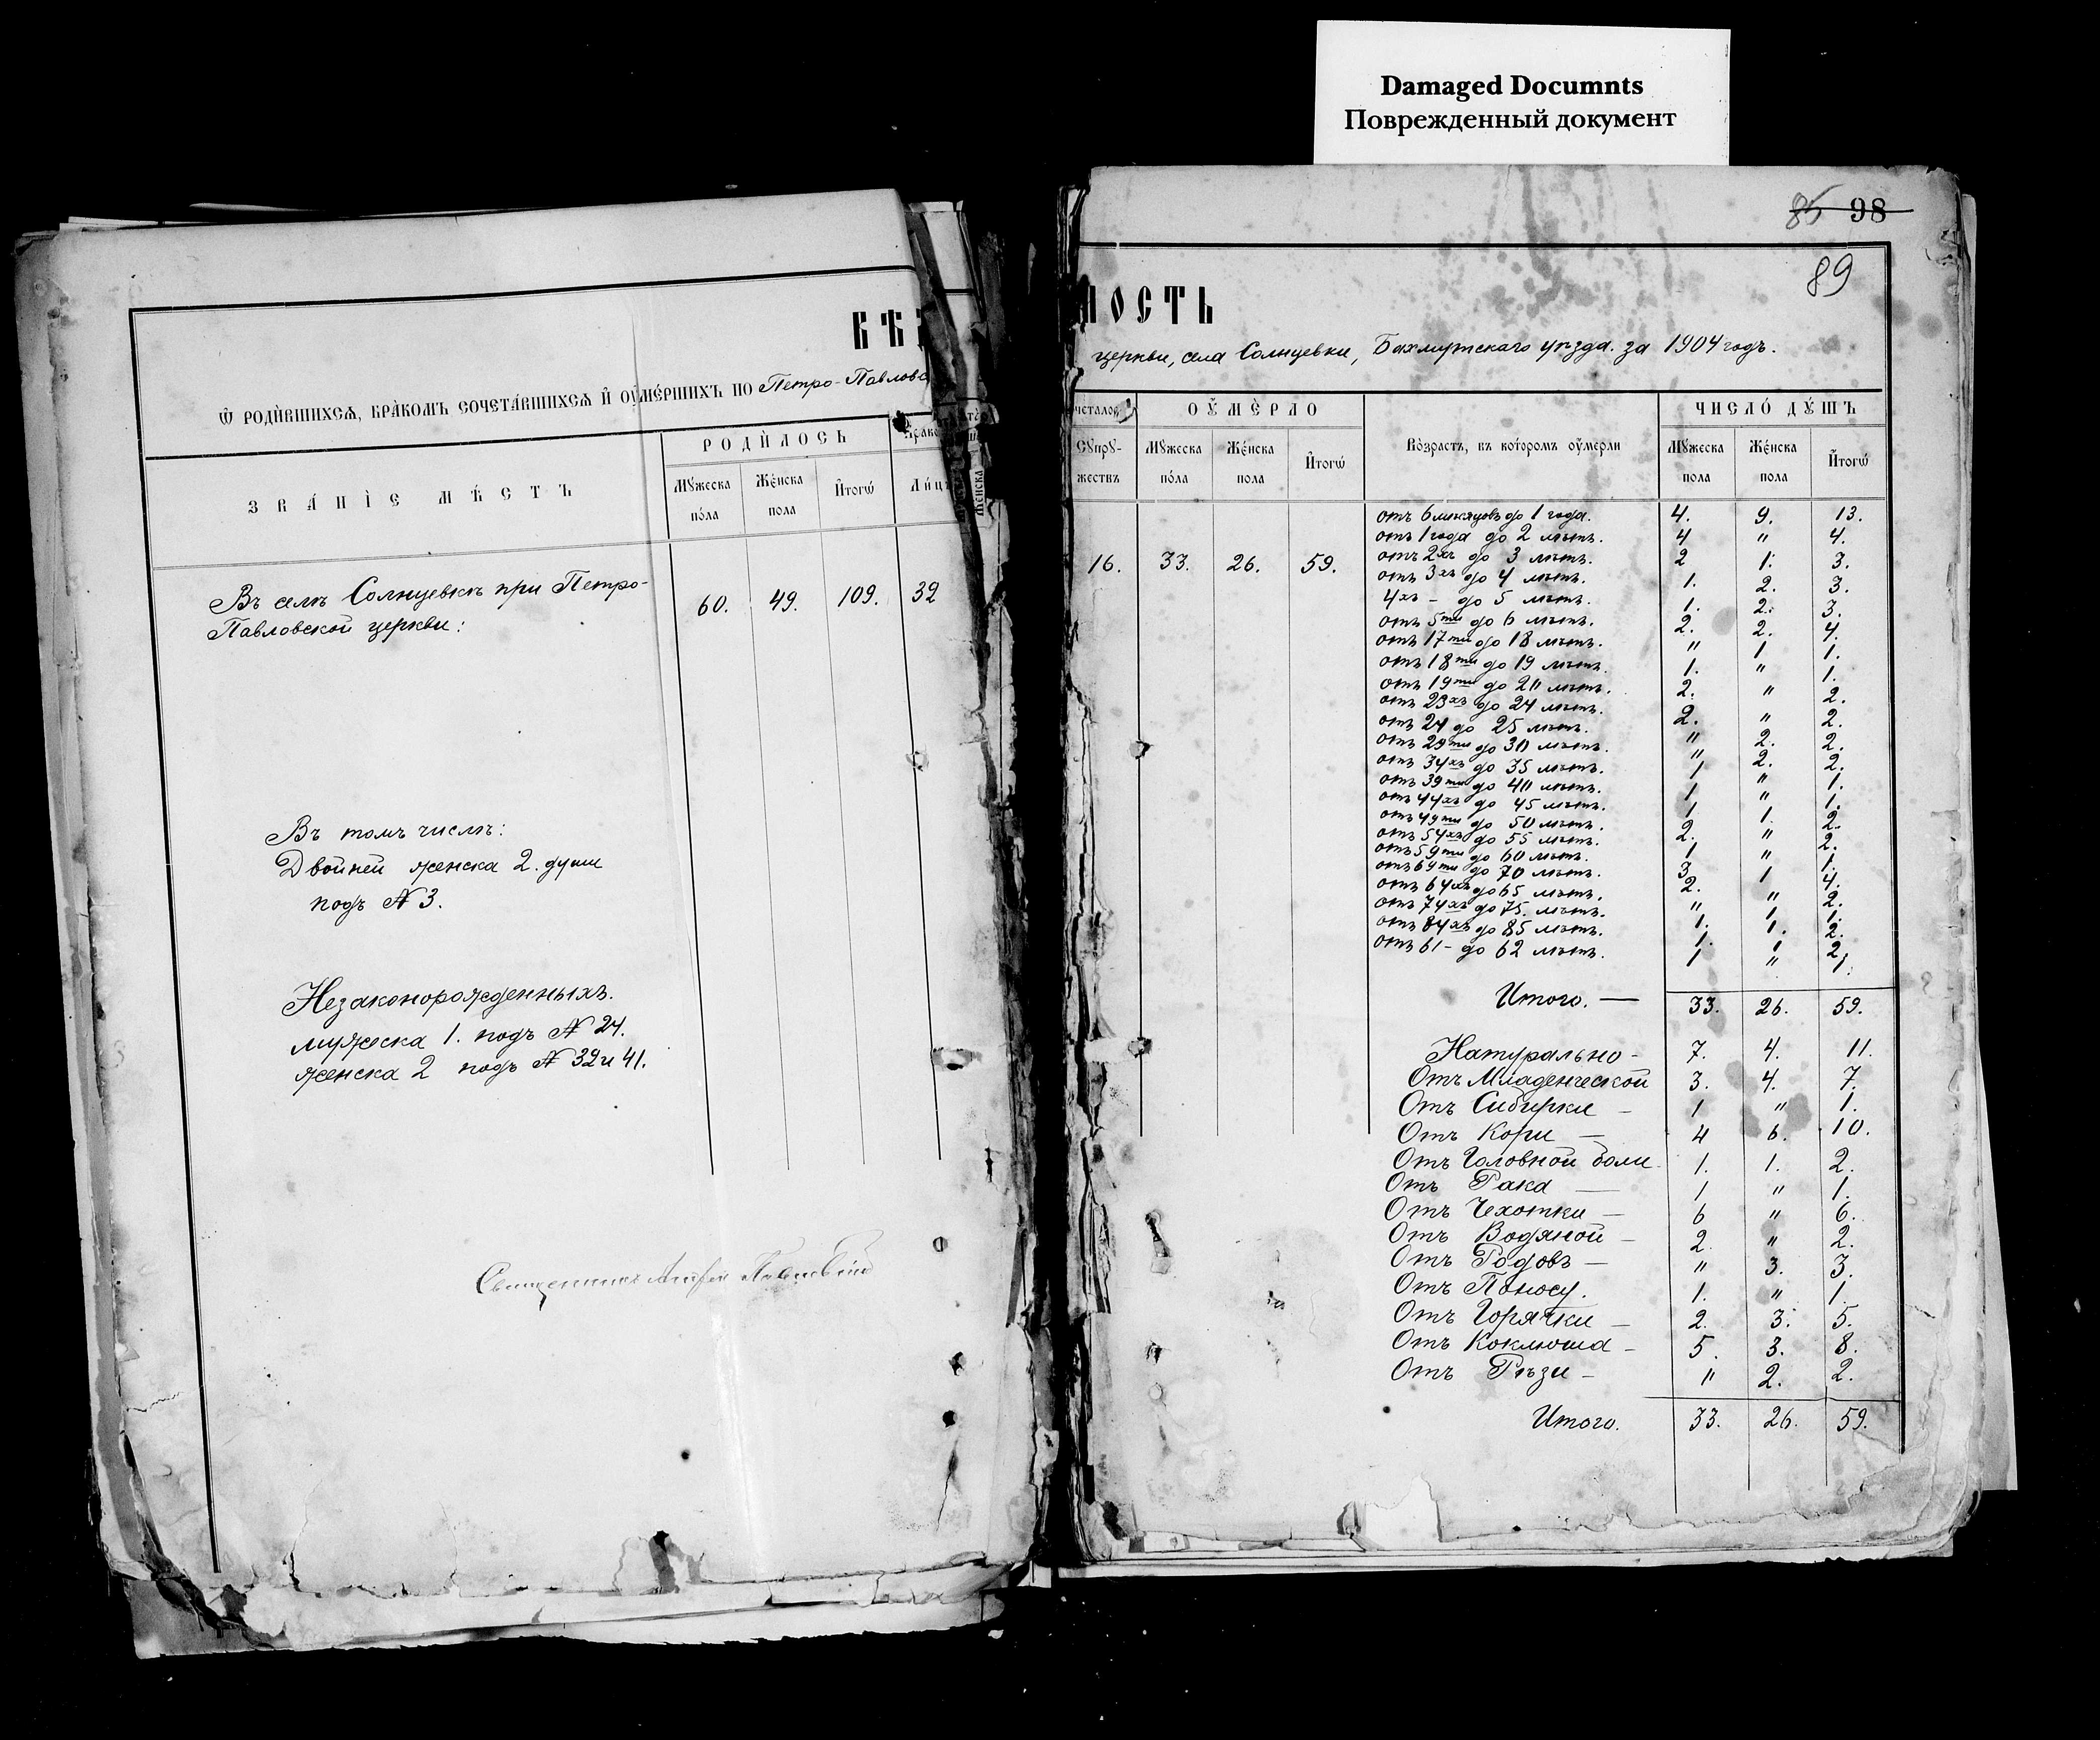 Damaged Documnts
Поврежденный документ
85 98
89
ВѢ
МОСТЬ
Ѿ РОДИ́ВШИХСѦ, БРА́КОМЪ СОЧЕТА́ВШИХСѦ И҆ ОУ҆МЕ́РШИХЪ ПО Петро-Павловс
церкви, села Солнцевки, Бахмутскаго уѣзда. за 1904 годъ.
ЗВА́НІЕ МѢ́СТЪ
РОДИ́ЛОСЬ
Мꙋ́жеска по́ла
Же́нска пола
И҆того̀
Бра
Лицъ
Женска
Сꙋпрꙋ-
жествъ
ОУ҆́МЕРЛО
Мꙋ́жеска по́ла
Же́нска пола
И҆того̀
Во́зрастъ, въ кото́ромъ оу҆́мерли
ЧИСЛО́ ДꙊ́ШЪ
Мꙋ́жеска пола
Же́нска пола
И҆того̀
Въ селѣ Солнцевкѣ при Петро-
Павловской церкви:
60. 49. 109. 32
Въ томъ числѣ:
Двойней женска 2. души
подъ № 3.
Незаконорожденныхъ.
мужеска 1. подъ № 24.
женска 2 подъ № 32 и 41.
Священникъ
16. 33. 26. 59.
отъ 6 мѣсяцовъ до 1 года. 4. 9. 13.
отъ 1 года до 2 лѣтъ. 4 " 4.
отъ 2хъ до 3 лѣтъ. 2 1. 3.
отъ 3хъ до 4 лѣтъ. 1. 2. 3.
4хъ - до 5 лѣтъ. 1. 2. 3.
отъ 5ти до 6 лѣтъ. 2. 2. 4.
отъ 17ти до 18 лѣтъ. " 1 1.
отъ 18ти до 19 лѣтъ. 1. " 1.
отъ 19ти до 20 лѣтъ. 2. " 2.
отъ 23хъ до 24 лѣтъ. 2. " 2.
отъ 24 до 25 лѣтъ. " 2. 2.
отъ 29ти до 30 лѣтъ. " 2. 2.
отъ 34хъ до 35 лѣтъ. 1 " 1.
отъ 39ти до 40 лѣтъ. 1 " 1.
отъ 44хъ до 45 лѣтъ. 1 1. 2.
отъ 49ти до 50 лѣтъ. 2. " 2.
отъ 54хъ до 55 лѣтъ. 1 " 1.
отъ 59ти до 60 лѣтъ. 3 1 4.
отъ 69ти до 70 лѣтъ. 2. " 2.
отъ 64хъ до 65 лѣтъ. " 1. 1.
отъ 74хъ до 75. лѣтъ. 1. 1. 2.
отъ 84хъ до 85 лѣтъ. 1. 1 2.
отъ 61 - до 62 лѣтъ. 1 " 1.
Итого. — 33. 26. 59.
Натурально - 7. 4. 11.
Отъ Младенческой 3. 4. 7.
Отъ Сибирки — 1 " 1.
Отъ Кори — 4 6. 10.
Отъ Головной боли 1. 1. 2.
Отъ Рака — 1 " 1.
Отъ Чехотки — 6 " 6.
Отъ Водяной — 2. " 2.
Отъ Родовъ — " 3. 3.
Отъ Поносу. 1. " 1.
Отъ Горячки — 2. 3. 5.
Отъ Коклюша — 5. 3. 8.
Отъ Рѣзи — " 2. 2.
Итого. 33. 26. 59.